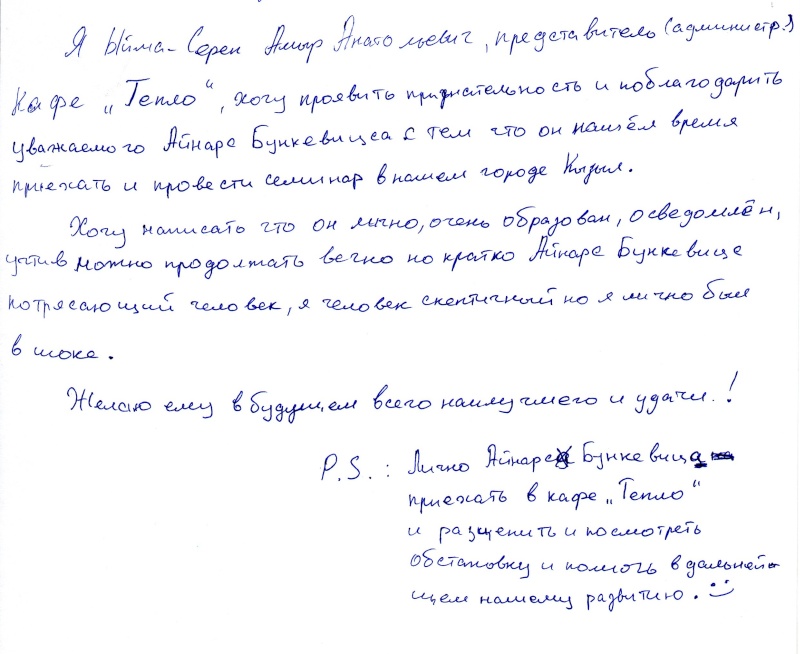 Я Ыйма-Серен Амыр Анатольевич, представитель (администр.)
Кафе „Тепло“, хочу проявить признательность и поблагодарить
уважаемого Айнарс Бункевицса с тем что он нашём время
приехать и провести семинар в нашем городе Кызыл.
Хочу написать что он лично, очень образован, осведомлён,
учтив можно продолжать вечно но кратко Айнарс Бункевицс
потрясающий человек, я человек скептичный но я лично был
в шоке.
Желаю ему в будущем всего наилучшего и удачи.!
P.S.: Лично Айнарса Бункевица
приехать в кафе „Тепло“
и разценить и посмотреть
обстановку и помочь в дальней-
щем нашему развитию. :)